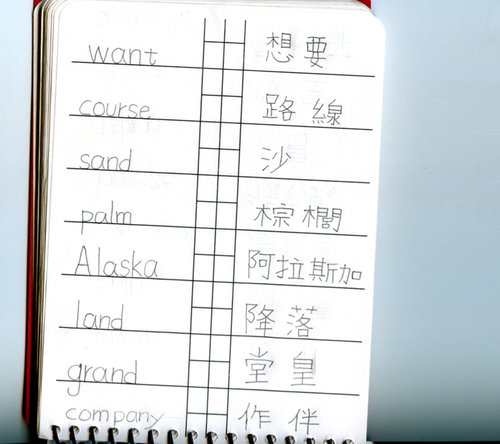 want 想要
course 路線
sand 沙
palm 棕櫚
Alaska 阿拉斯加
land 降落
grand 堂皇
company 作伴